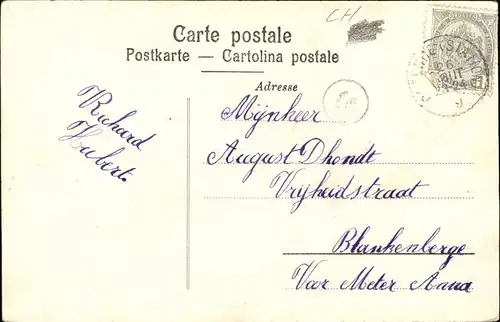 CH
Carte postale
Postkarte — Cartolina postale
Adresse
Mijnheer
August Dhondt
Vrijheidstraat
Blankenberge
Voor Meter Anna
Richard
Hubert.